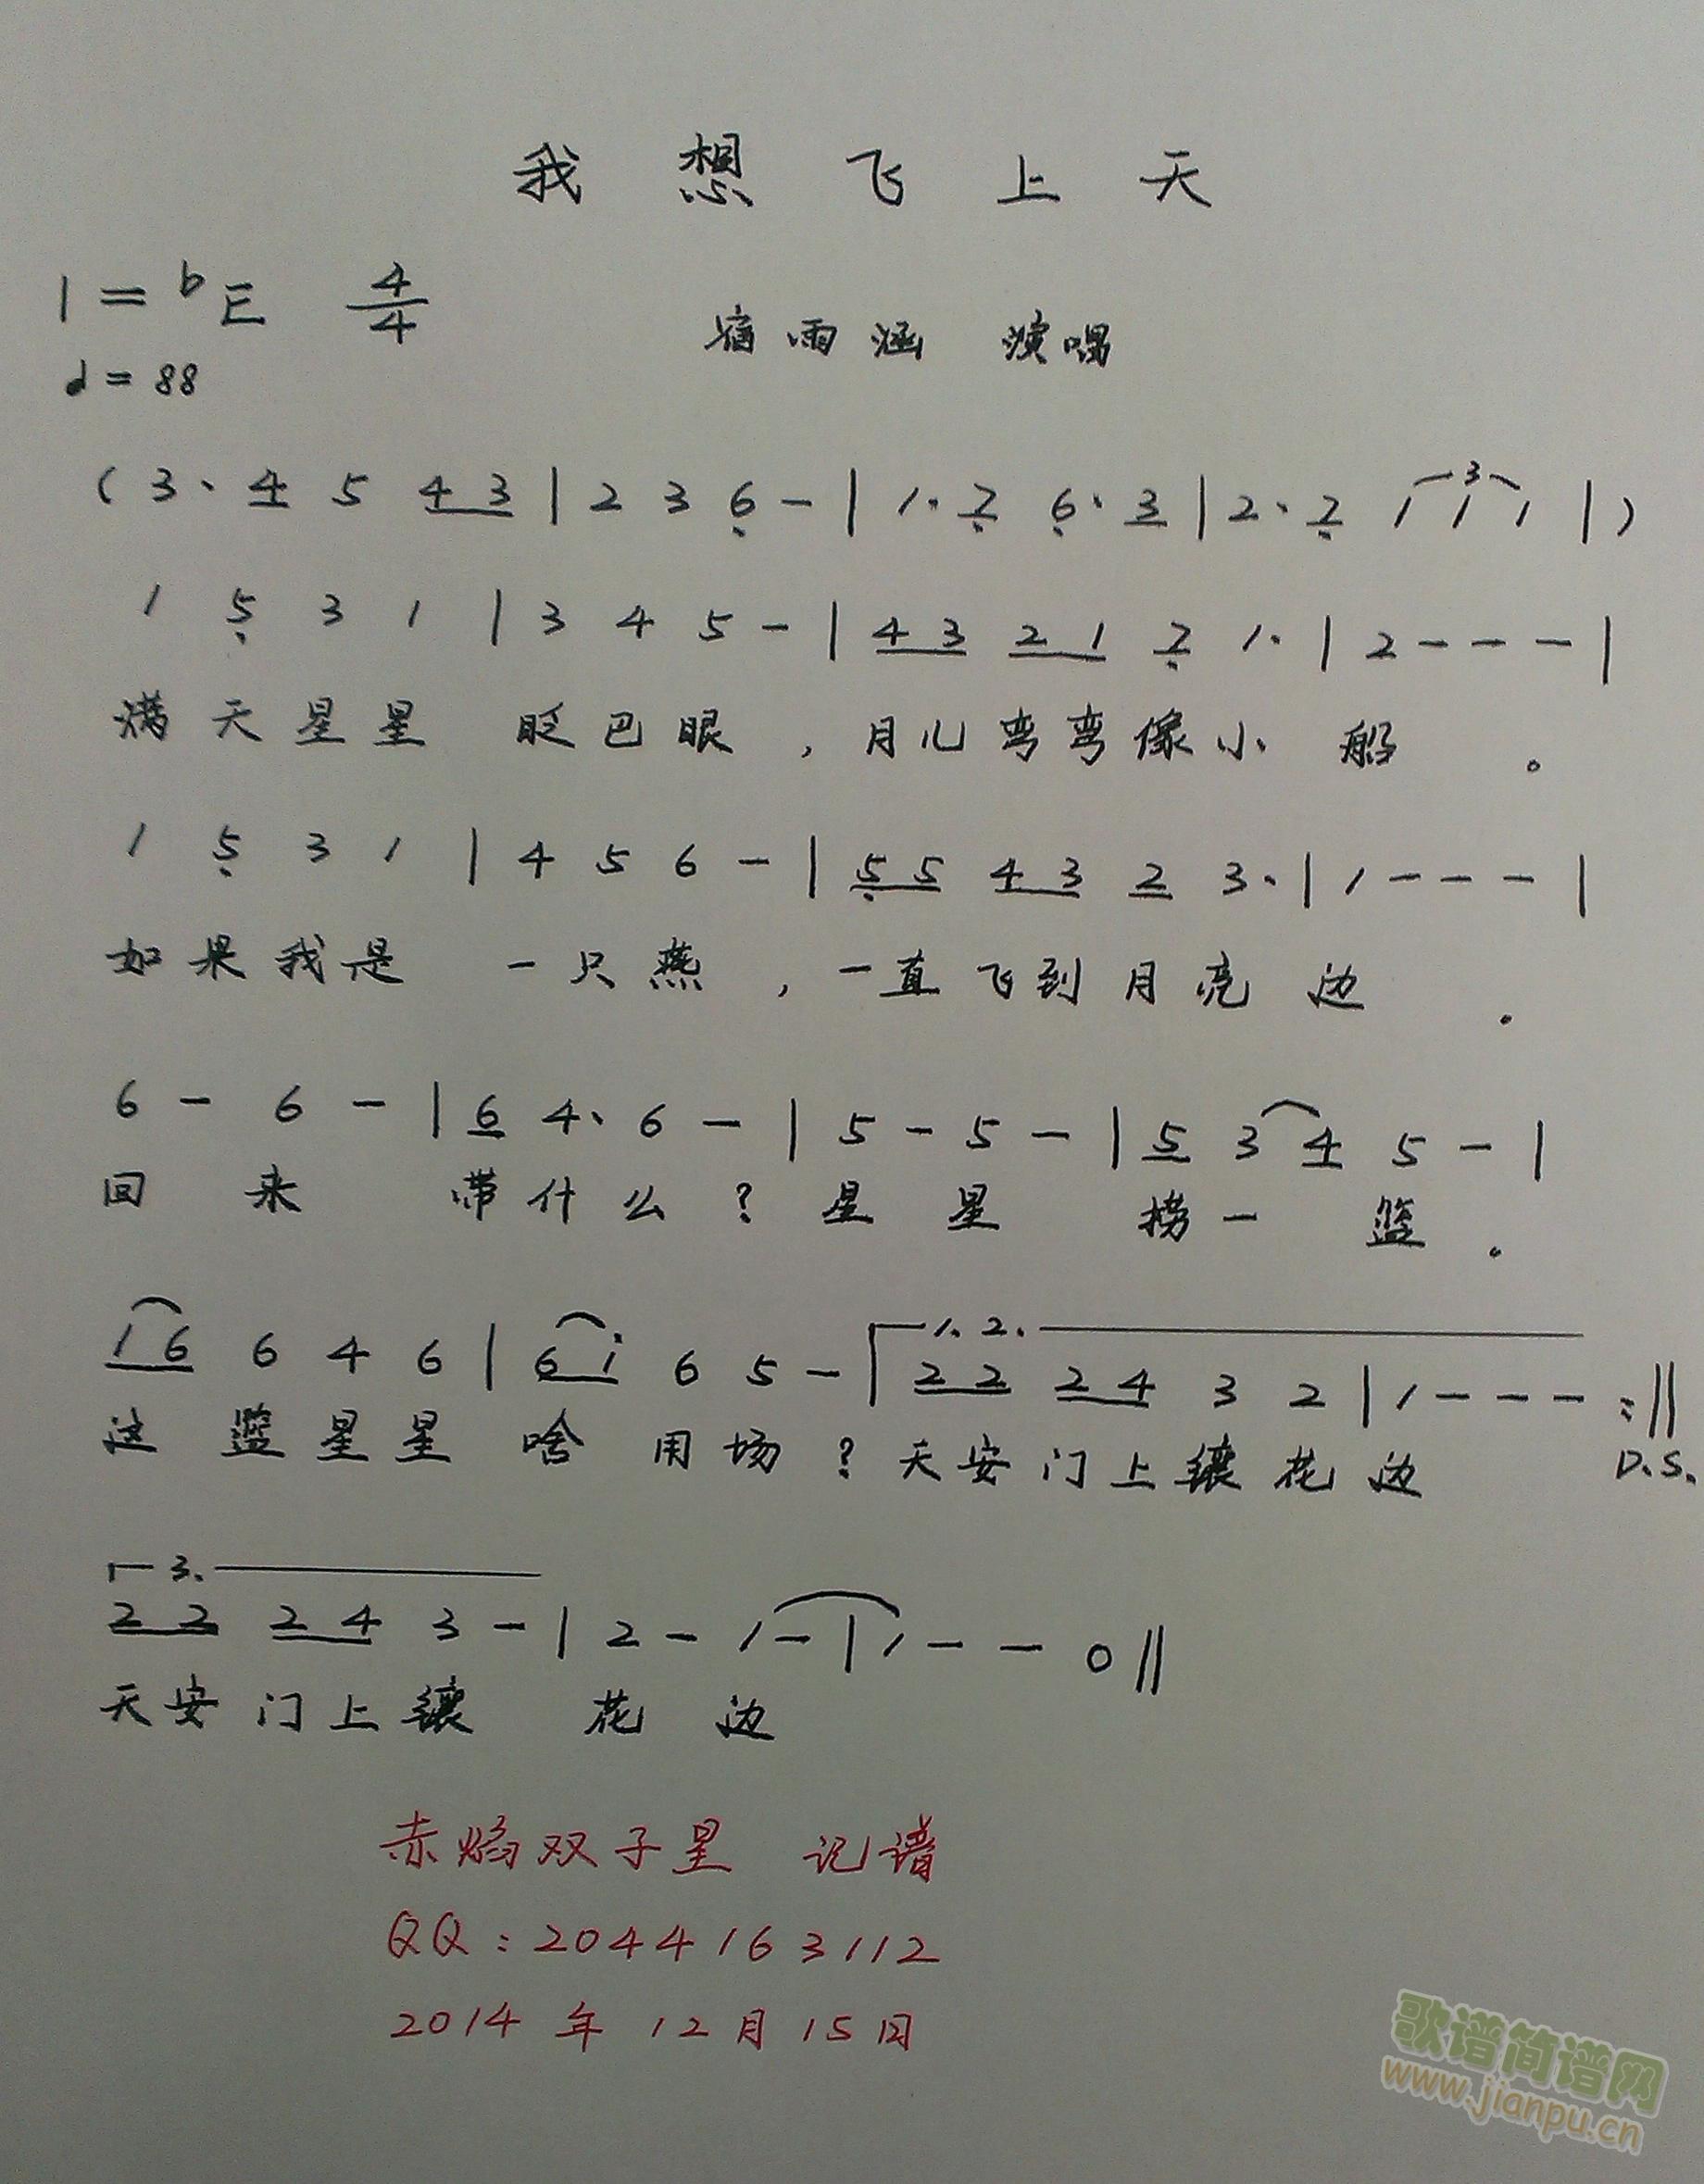 我想飞上天
1=bE 4/4
宿雨涵 演唱
♩=88
(3· 4 5 4 3 | 2 3 6̣ - | 1· 7̣ 6̣· 3 | 2· 7̣ 1 1 1 |)
3
1 5̣ 3 1 | 3 4 5 - | 4 3 2 1 7̣ 1· | 2 - - - |
满天星星 眨巴眼，月儿弯弯像小船。
1 5̣ 3 1 | 4 5 6 - | 5̣ 5 4 3 2 3· | 1 - - - |
如果我是 一只燕，一直飞到月亮边。
6 - 6 - | 6 4· 6 - | 5 - 5 - | 5 3 4 5 - |
回来 带什么？星星 捞一篮。
1 6 6 4 6 | 6 i̇ 6 5 - | 1. 2. 2 2 2 4 3 2 | 1 - - - :‖
这篮星星啥用场？天安门上镶花边 D.S.
3.
2 2 2 4 3 - | 2 - 1 - | 1 - - 0 ‖
天安门上镶 花边
赤焰双子星 记谱
QQ：2044163112
2014年12月15日
歌谱简谱网
www.jianpu.cn